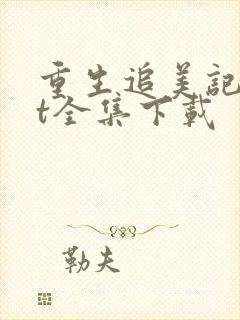 重生追美記
t全集下載
勒夫